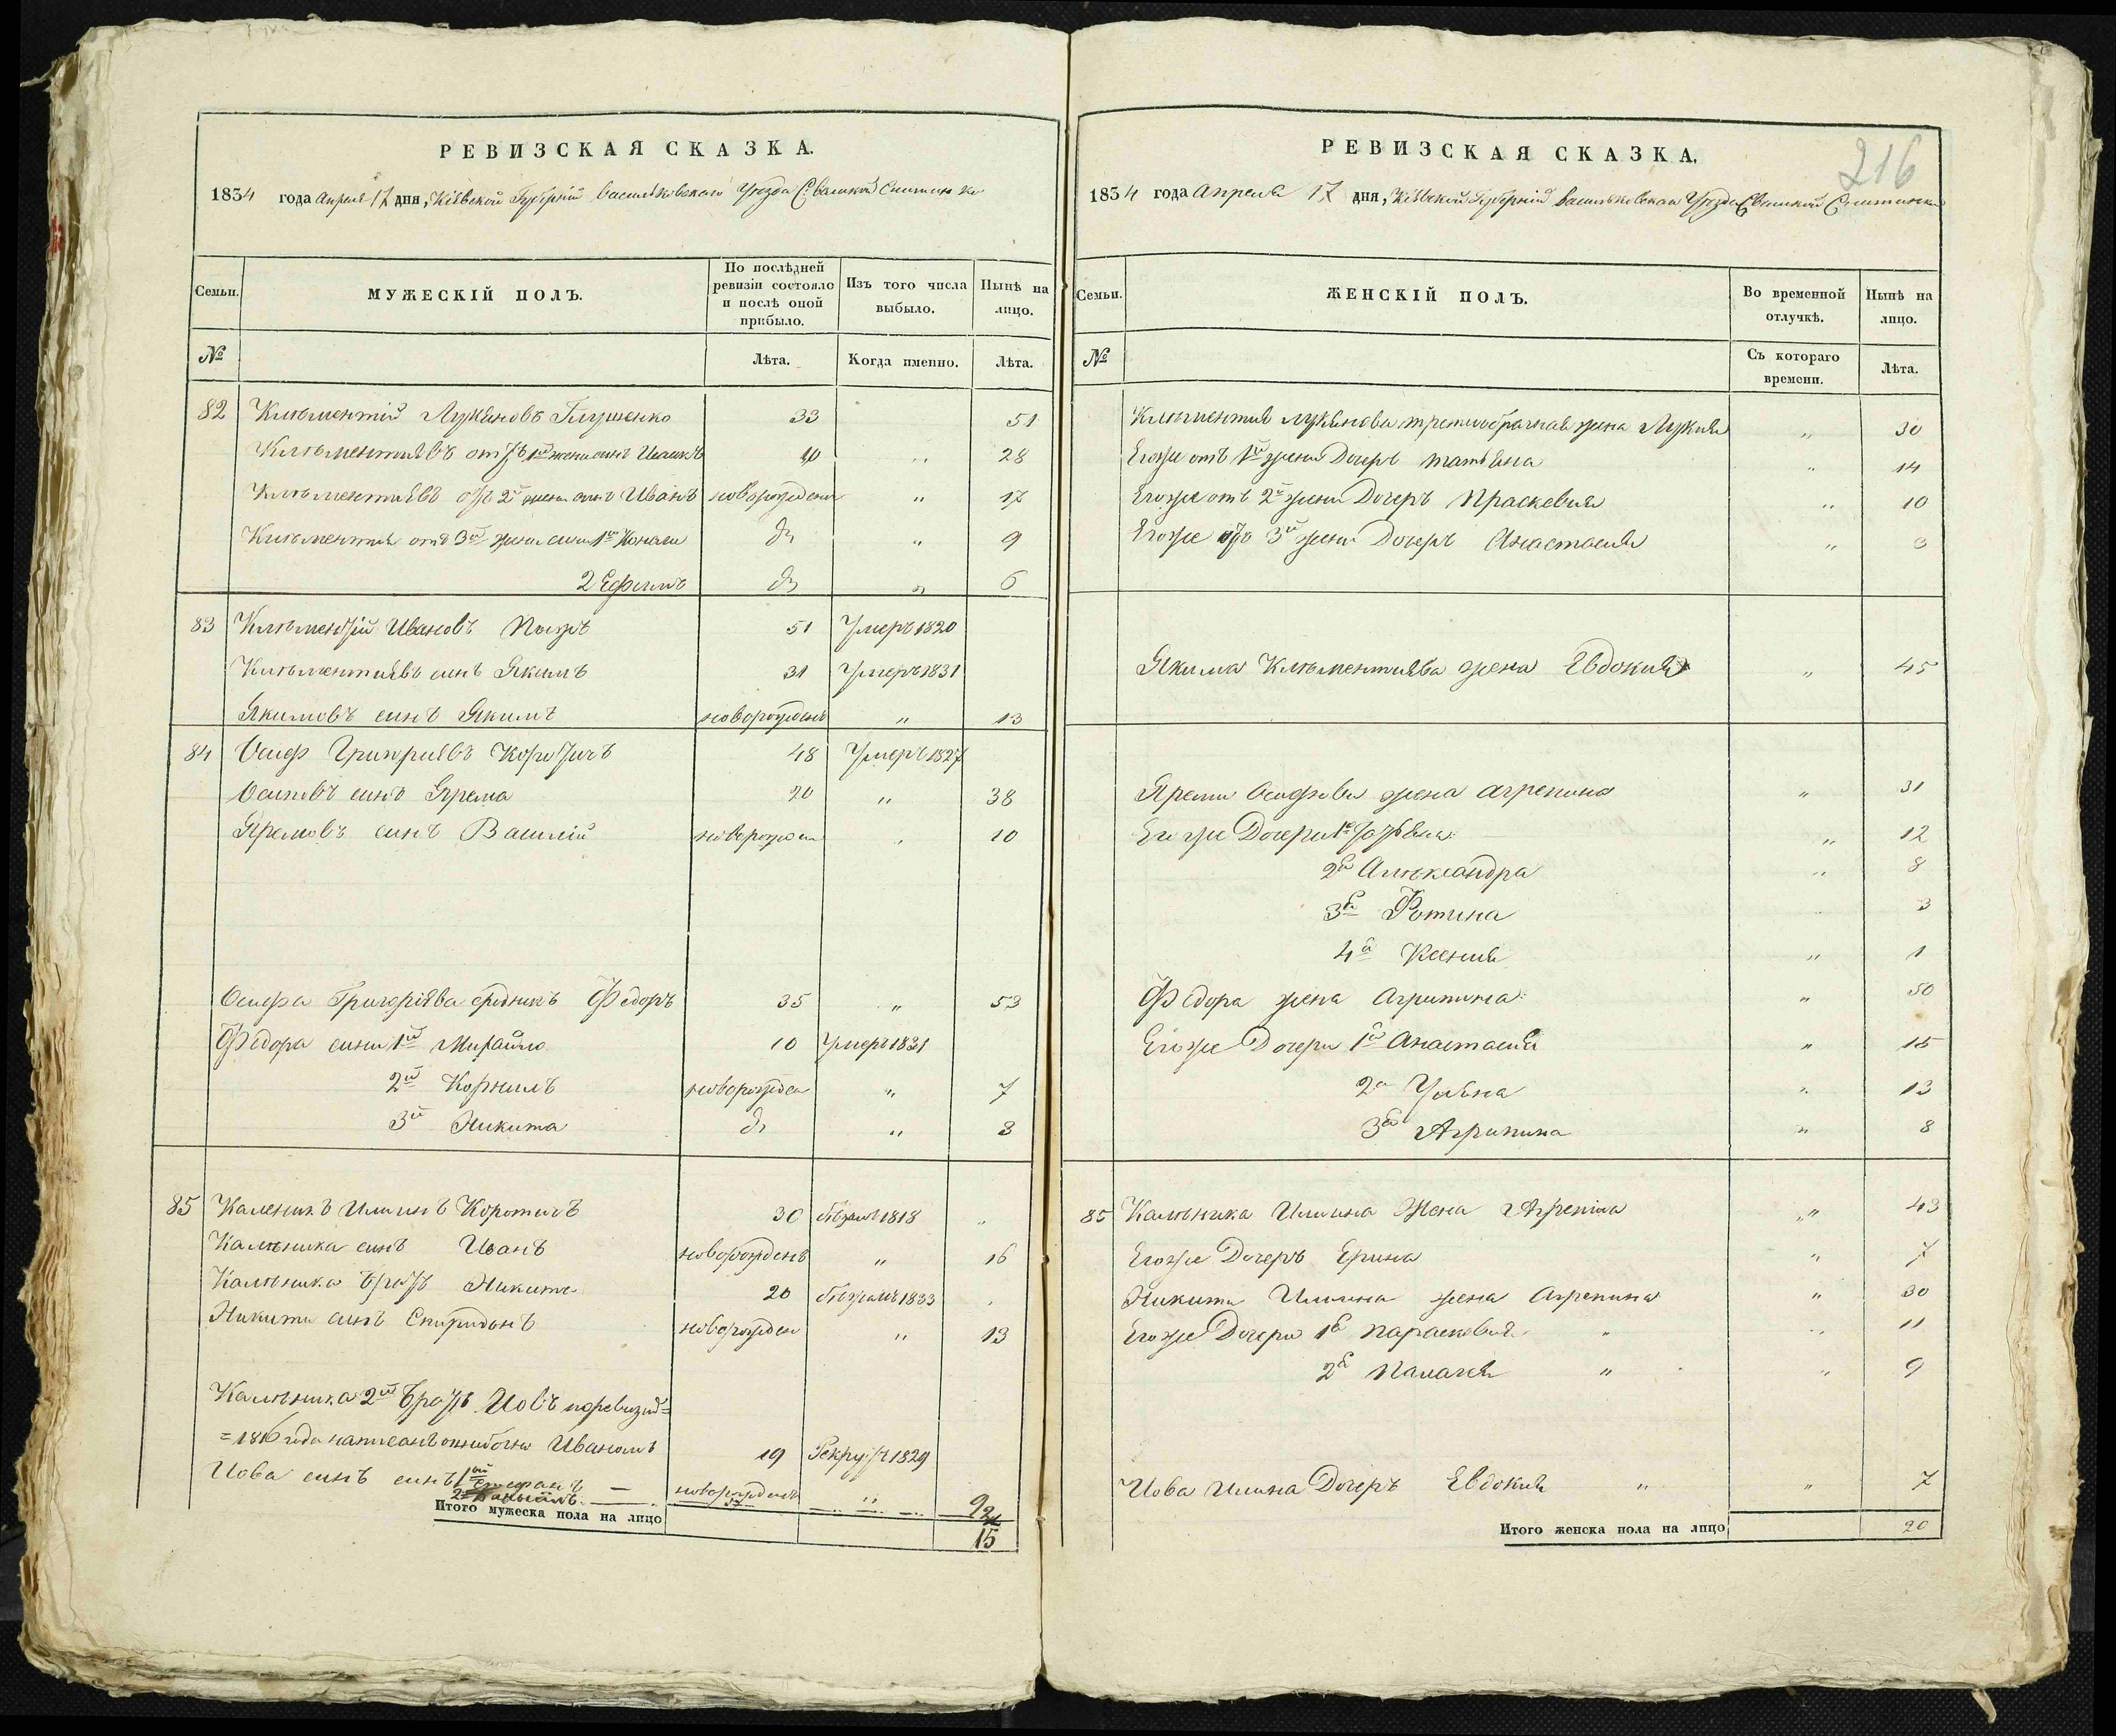 РЕВИЗСКАЯ СКАЗКА.
1834 года Апреля 17 дня, Кіевской Губерніи Васильковскаго Уѣзда С. Великой Снитинки
Семьи.
МУЖЕСКІЙ ПОЛЪ.
По послѣдней ревизіи состояло и послѣ оной прибыло.
Изъ того числа выбыло.
Нынѣ на лицо.
№
Лѣта.
Когда именно.
Лѣта.
82 Клѣментій Лукяновъ Глушенко 33 51
Клѣментіевъ отъ 1й жени синъ 10 „ 28
Клѣментіевъ отъ 2й жени синъ Иванъ новорожденъ „ 17
Клѣментія отъ 3й жени сини 1й дъ „ 9
2 Ефимъ дъ „ 6
83 Клѣментій Ивановъ 51 Умеръ 1820
Клѣментіевъ синъ Якимъ 31 Умеръ 1831
Якимовъ синъ Якимъ новорожденъ „ 13
84 Осифъ Григоріевъ Коротичъ 48 Умеръ 1827
Осиповъ синъ Ярема 20 „ 38
Яремовъ синъ Василій новорожден „ 10
Осифа Григоріева Федоръ 35 „ 53
Федора сини 1й Михайло 10 Умеръ 1831
2й Корнилъ новорожден „ 7
3й Никита дъ „ 3
85 Каленикъ Илинъ Коротичъ 30 бѣжалъ 1818 „
Калѣника синъ Иванъ новорожденъ „ 16
Калѣника братъ Никита 20 бѣжалъ 1833
Никити синъ Спиридонъ новорожден „ 13
Калѣника 2й братъ Иовъ поревизіи=
=1816 года написанъ ошибочно Иваномъ 19 Рекрутъ 1829
Иова синъ синъ 1й Стефанъ — новорожденъ „ 9
Итого мужеска пола на лицо 15
216
РЕВИЗСКАЯ СКАЗКА,
1834 года Апреля 17 дня, Кіевской Губерніи Васильковскаго Уѣзда С Великой Снитинки
Семьи.
ЖЕНСКІЙ ПОЛЪ.
Во временной отлучкѣ.
Нынѣ на лицо.
№
Съ котораго времени.
Лѣта.
Клѣментія Лукянова третообрачная жена Лукия „ 30
Егоже отъ 1й жени Дочеръ Татьяна „ 14
Егоже отъ 2й жени Дочеръ Праскевия „ 10
Егоже отъ 3й жени Дочеръ Анастасия „ 3
Якима Клѣментиева жена Евдокия „ 45
Яреми Осифова жена Агрепина „ 31
Егоже Дочери 1я „ 12
2я Алѣксандра „ 8
3я Фотина „ 3
4я Ксения „ 1
Федора жена Агрипина „ 50
Егоже Дочери 1я Анастасия „ 15
2я Уляна „ 13
3я Агрипина „ 8
85 Калѣника Илина Жена Агрепина „ 43
Егоже Дочеръ Ерина „ 7
Никити Илина жена Агрепина „ 30
Егоже Дочери 1я Параскевия „ „ 11
2я Палагея „ „ 9
Иова Илина Дочеръ Евдокия „ „ 7
Итого женска пола на лицо 20